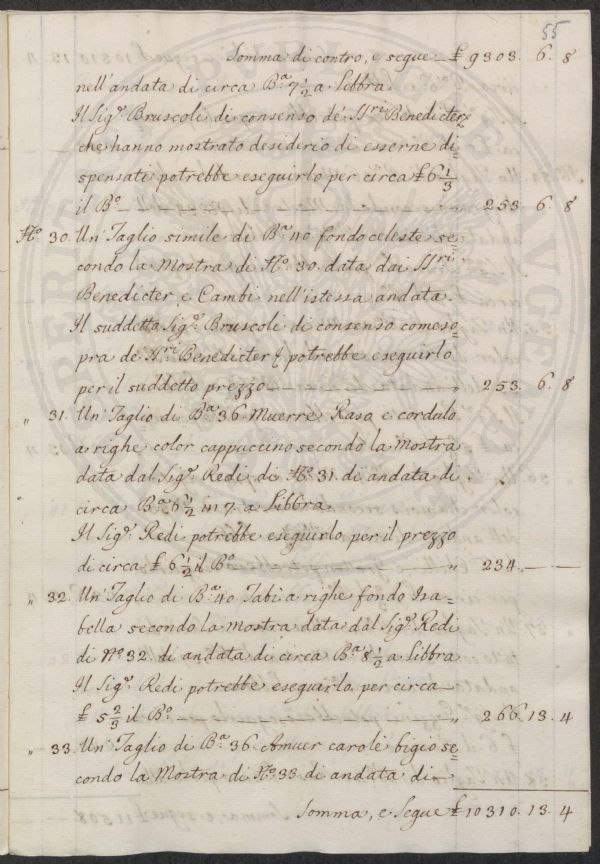 55
Somma di contro, e segue — £ 9303. 6. 8
nell'andata di circa B.ª 7 1/2 a Libbra.
Il Sig.r Bruscoli di consenso de' SS.ri Benedicter
che hanno mostrato desiderio di esserne di=
spensati potrebbe eseguirlo per circa £ 6 1/3
il B.º — " 253. 6. 8
N.º 30. Un Taglio simile di B.ª 40. fondo celeste se=
condo la Mostra di N.º 30. data dai SS.ri
Benedicter, e Cambi nell'istessa andata.
Il suddetto Sig.r Bruscoli di consenso comeso=
pra de SS.ri Benedicter potrebbe eseguirlo
per il suddetto prezzo — " 253. 6. 8
" 31. Un Taglio di B.ª 36. Muerre Raso e cordulo
a righe color cappuccino secondo la Mostra
data dal Sig.r Redi di N.º 31. di andata di
circa B.ª 6 1/2 in 7. a Libbra.
Il Sig.r Redi potrebbe eseguirlo per il prezzo
di circa £ 6 1/2 il B.º " 234. — —
" 32. Un Taglio di B.ª 40. Tabì a righe fondo Isa=
bella secondo la Mostra data dal Sig.r Redi
di N.º 32. di andata di circa B.ª 8 1/2 a Libbra
Il Sig.r Redi potrebbe eseguirlo per circa —
£ 5 2/3 il B.º — " 266. 13. 4
" 33. Un Taglio di B.ª 36. Amuer carolè bigio se=
condo la Mostra di N.º 33. di andata di —
Somma, e Segue £ 10310. 13. 4